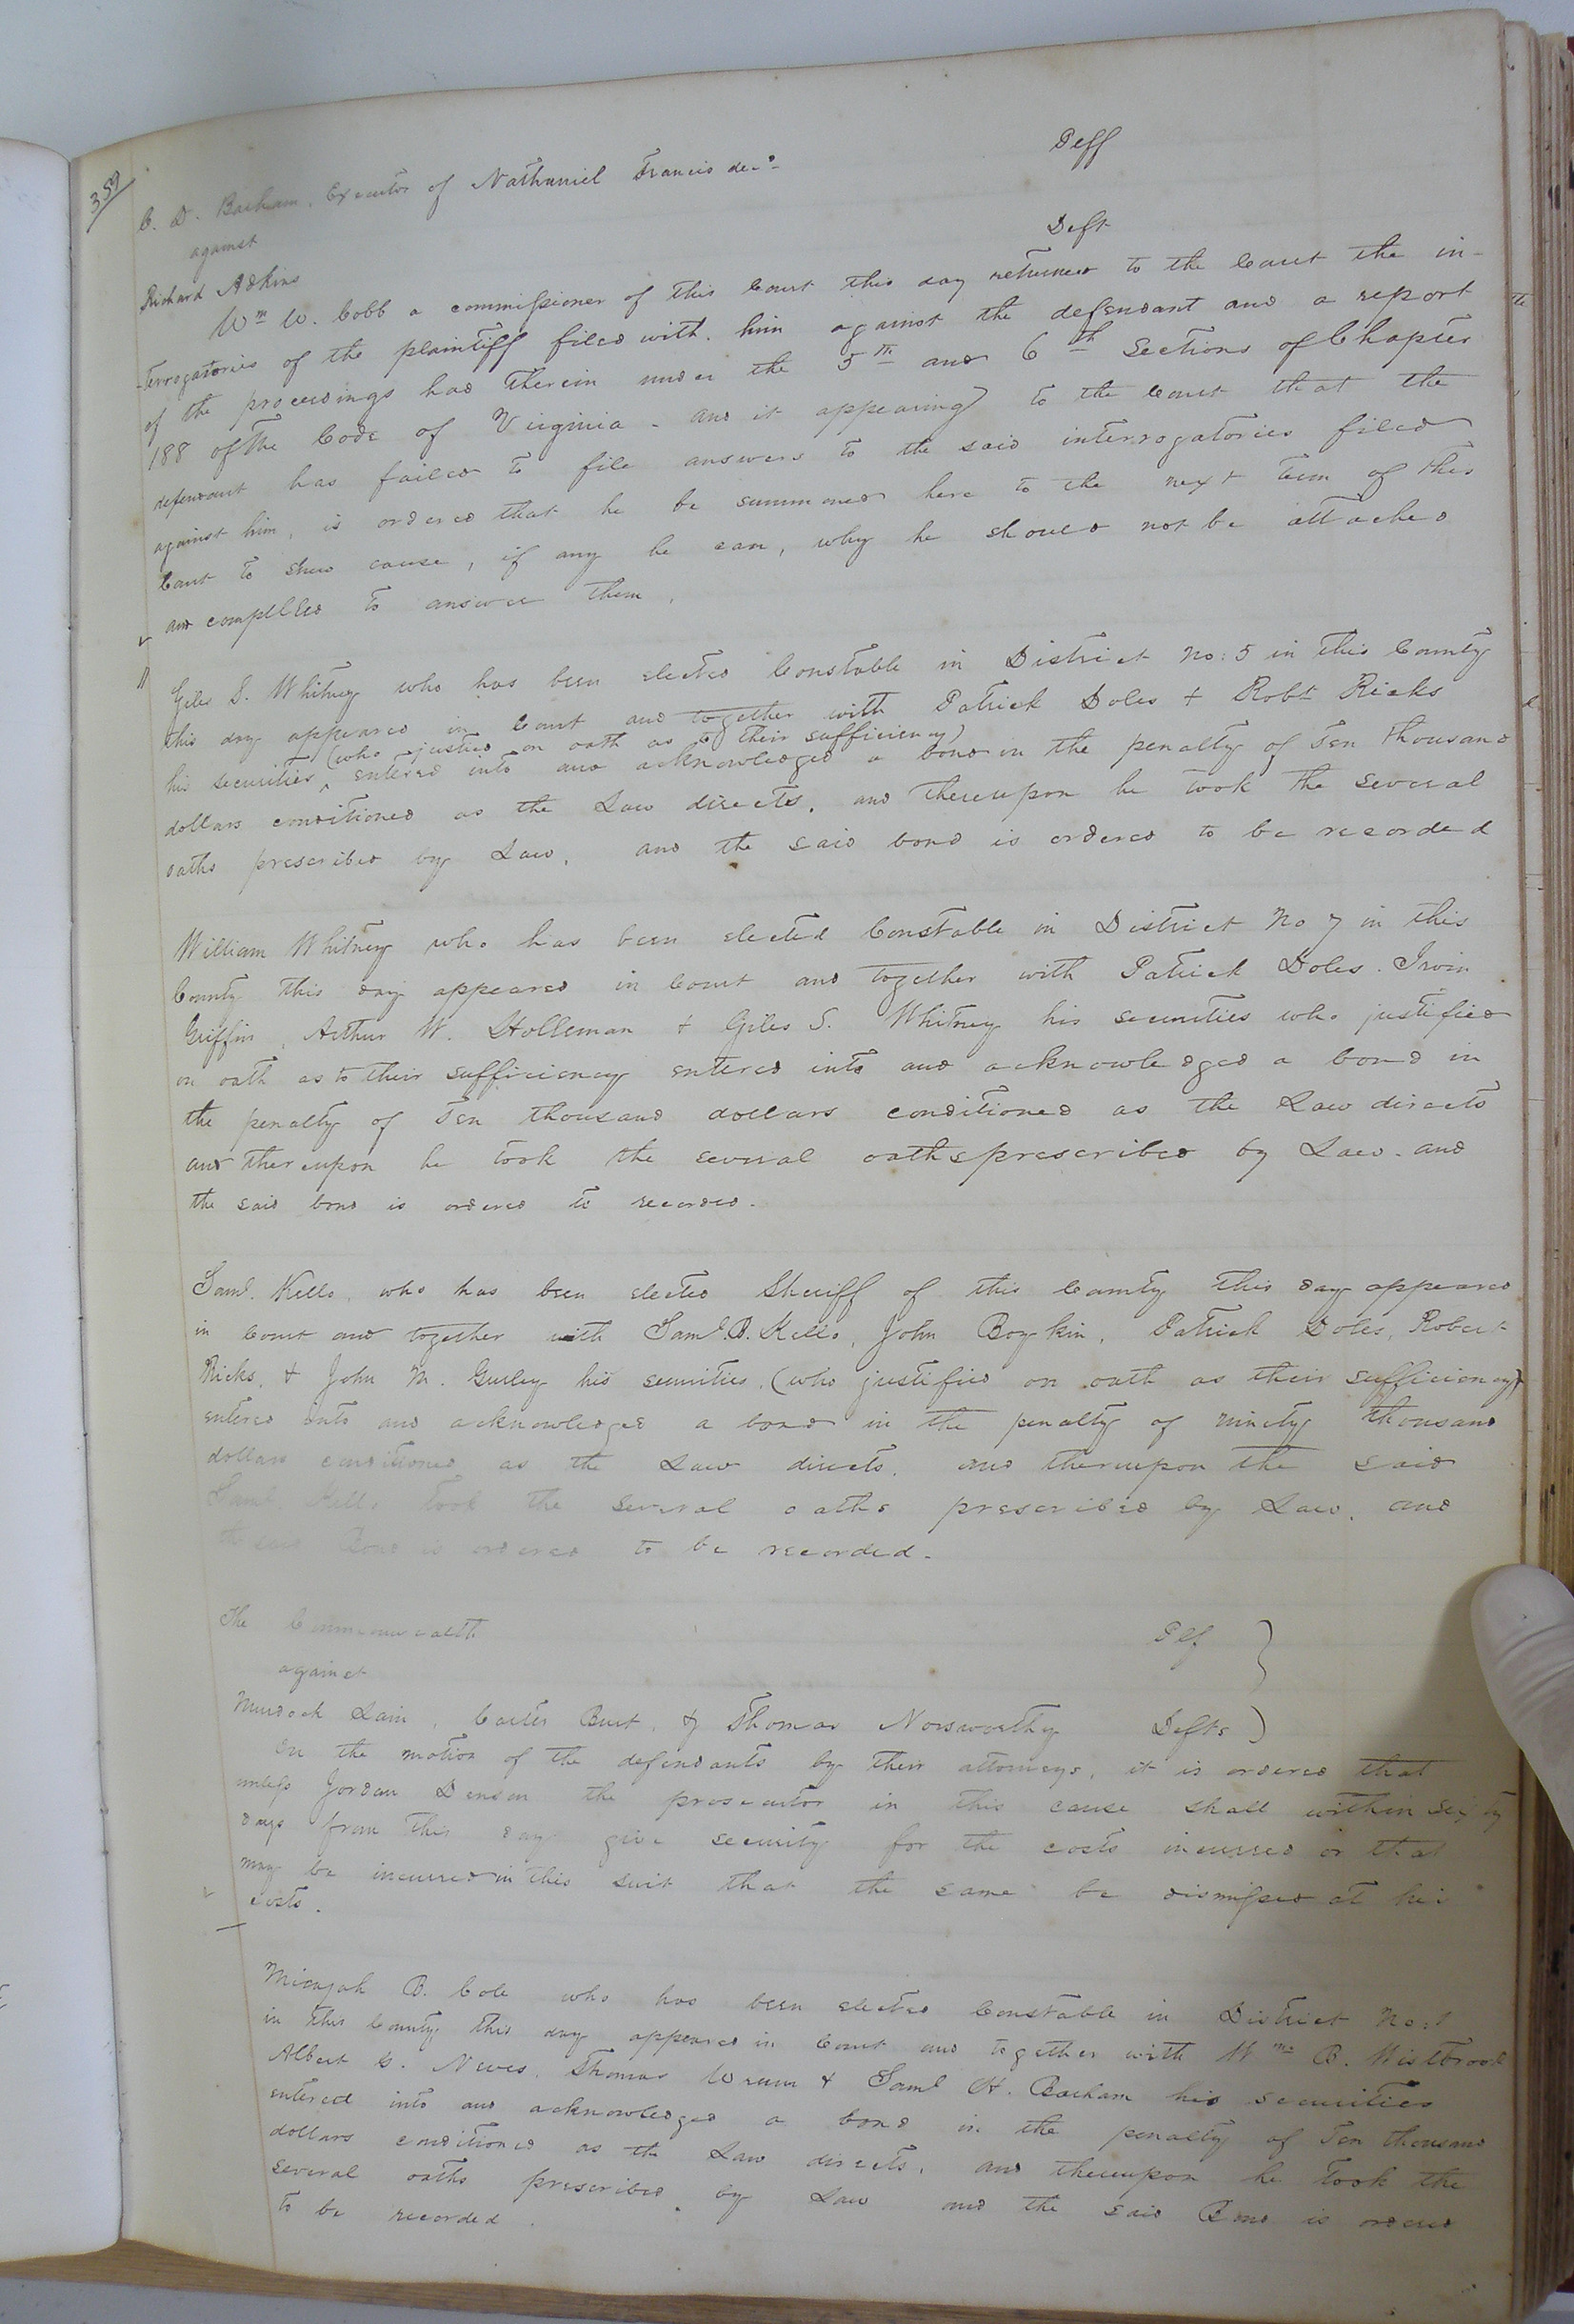 359
C. D. Barham, Executor of Nathaniel Francis decd Peff
against
Richard Adkins Deft
Wm W. Cobb a commissioner of this Court this day returned to the Court the in-
terrogatories of the plaintiff filed with him against the defendant and a report
of the proceedings had therein under the 5th and 6th Sections of Chapter
188 of the Code of Virginia - and it appearing to the Court that the
defendant has failed to file answers to the said interrogatories filed
against him, is ordered that he be summoned here to the next term of this
Court to shew cause, if any he can, why he should not be attached
and compelled to answer them.
Giles S. Whitney who has been elected Constable in District No: 5 in this County
this day appeared in Court and together with Patrick Doles + Robt Ricks
(who justied on oath as to their sufficiency)
his securities, entered into and acknowledged a bond in the penalty of Ten thousand
dollars conditioned as the Law directs, and thereupon he took the several
oaths prescribed by Law, and the said bond is ordered to be recorded
William Whitney who has been elected Constable in District No 7 in this
County this day appeared in Court and together with Patrick Doles. Irvin
Griffin, Arthur W. Holleman + Giles S. Whitney his securities who justified
on oath as to their sufficiency entered into and acknowledged a bond in
the penalty of Ten thousand dollars conditioned as the Law directs
and thereupon he took the several oaths prescribed by Law. and
the said bond is ordered to recorded.
Saml. Kello, who has been elected Sheriff of this County this day appeared
in Court and together with Saml. B. Kello, John Boykin, Patrick Doles, Robert
Ricks, + John M. Gurley his securities, (who justified on oath as their sufficiency)
entered into and acknowledged a bond in the penalty of ninety thousand
dollars conditioned as the Law directs, and thereupon the said
Saml Kello took the several oaths prescribed by Law, and
the said Bond is ordered to be recorded.
The Commonwealth Plf
against
Murdock Lain, Carter Burt, & Thomas Norsworthy Defts
On the motion of the defendants by their attorneys, it is ordered that
unless Jordan Denson the prosecutor in this cause shall within sixty
days from this day give security for the costs incurred or that
may be incurred in this suit that the same be dismissed at his
costs.
Micajah B. Cole who has been elected Constable in District No: 1
in this County this day appeared in Court and together with Wm B. Westbrook
Albert G. Neves, Thomas Wrenn + Saml H. Barham his securities
entered into and acknowledged a bond in the penalty of Ten thousand
dollars conditioned as the Law directs, and thereupon he took the
several oaths prescribed by Law and the said Bond is ordered
to be recorded.